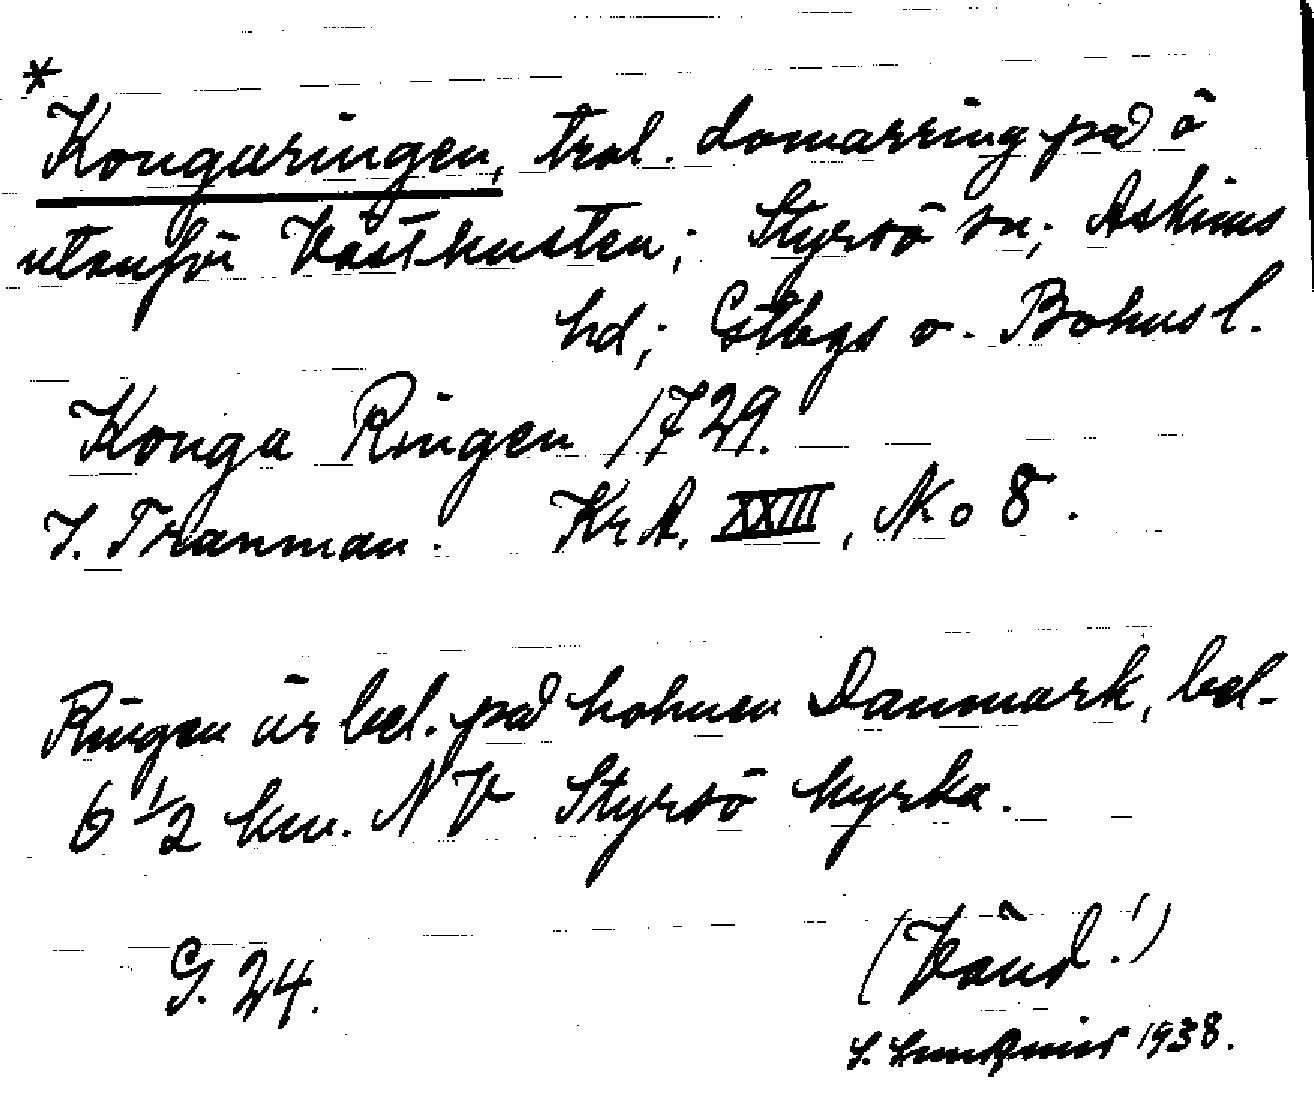 *
Kongaringen, trol. domarring på ö
utanför Västkusten; Styrsö sn; Askims
hd; Gtbgs o. Bohusl.
Konga Ringen 1729.
J. Tranman. Kr A. XXIII, No 8.
Ringen är bel. på holmen Danmark, bel.
6 1/2 km. NV Styrsö kyrka.
G. 24.
(Vänd!)
1938.